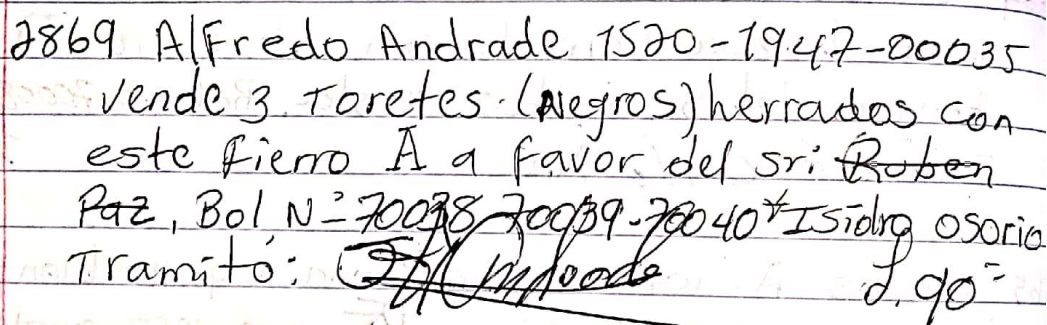 2869 Alfredo Andrade 1520-1947-00035
vende 3 Toretes (Negros) herrados con
este fierro A a favor del sr: Ruben
Paz, Bol N=70038 70039-70040*Isidro osorio
Tramitó: L.90=